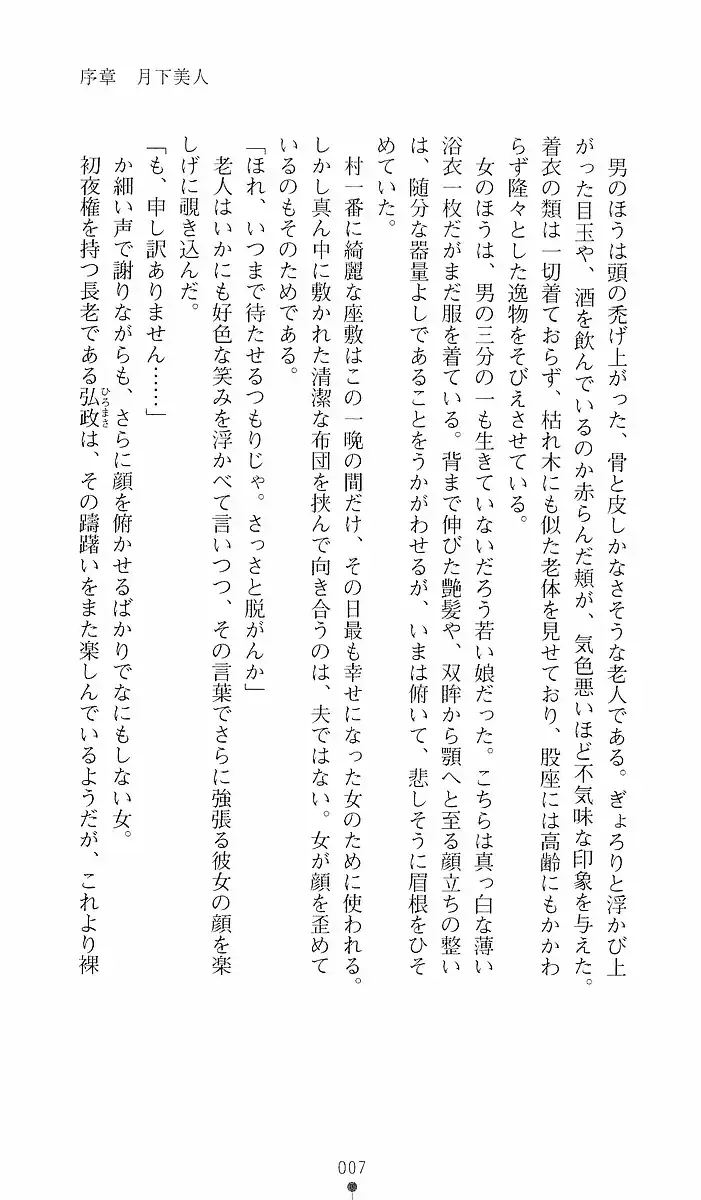 序章　月下美人
　男のほうは頭の禿げ上がった、骨と皮しかなさそうな老人である。ぎょろりと浮かび上
がった目玉や、酒を飲んでいるのか赤らんだ頬が、気色悪いほど不気味な印象を与えた。
着衣の類は一切着ておらず、枯れ木にも似た老体を見せており、股座には高齢にもかかわ
らず隆々とした逸物をそびえさせている。
　女のほうは、男の三分の一も生きていないだろう若い娘だった。こちらは真っ白な薄い
浴衣一枚だがまだ服を着ている。背まで伸びた艶髪や、双眸から顎へと至る顔立ちの整い
は、随分な器量よしであることをうかがわせるが、いまは俯いて、悲しそうに眉根をひそ
めていた。
　村一番に綺麗な座敷はこの一晩の間だけ、その日最も幸せになった女のために使われる。
しかし真ん中に敷かれた清潔な布団を挟んで向き合うのは、夫ではない。女が顔を歪めて
いるのもそのためである。
「ほれ、いつまで待たせるつもりじゃ。さっさと脱がんか」
　老人はいかにも好色な笑みを浮かべて言いつつ、その言葉でさらに強張る彼女の顔を楽
しげに覗き込んだ。
「も、申し訳ありません……」
　か細い声で謝りながらも、さらに顔を俯かせるばかりでなにもしない女。
　初夜権を持つ長老である弘政は、その躊躇いをまた楽しんでいるようだが、これより裸
ひろまさ
007